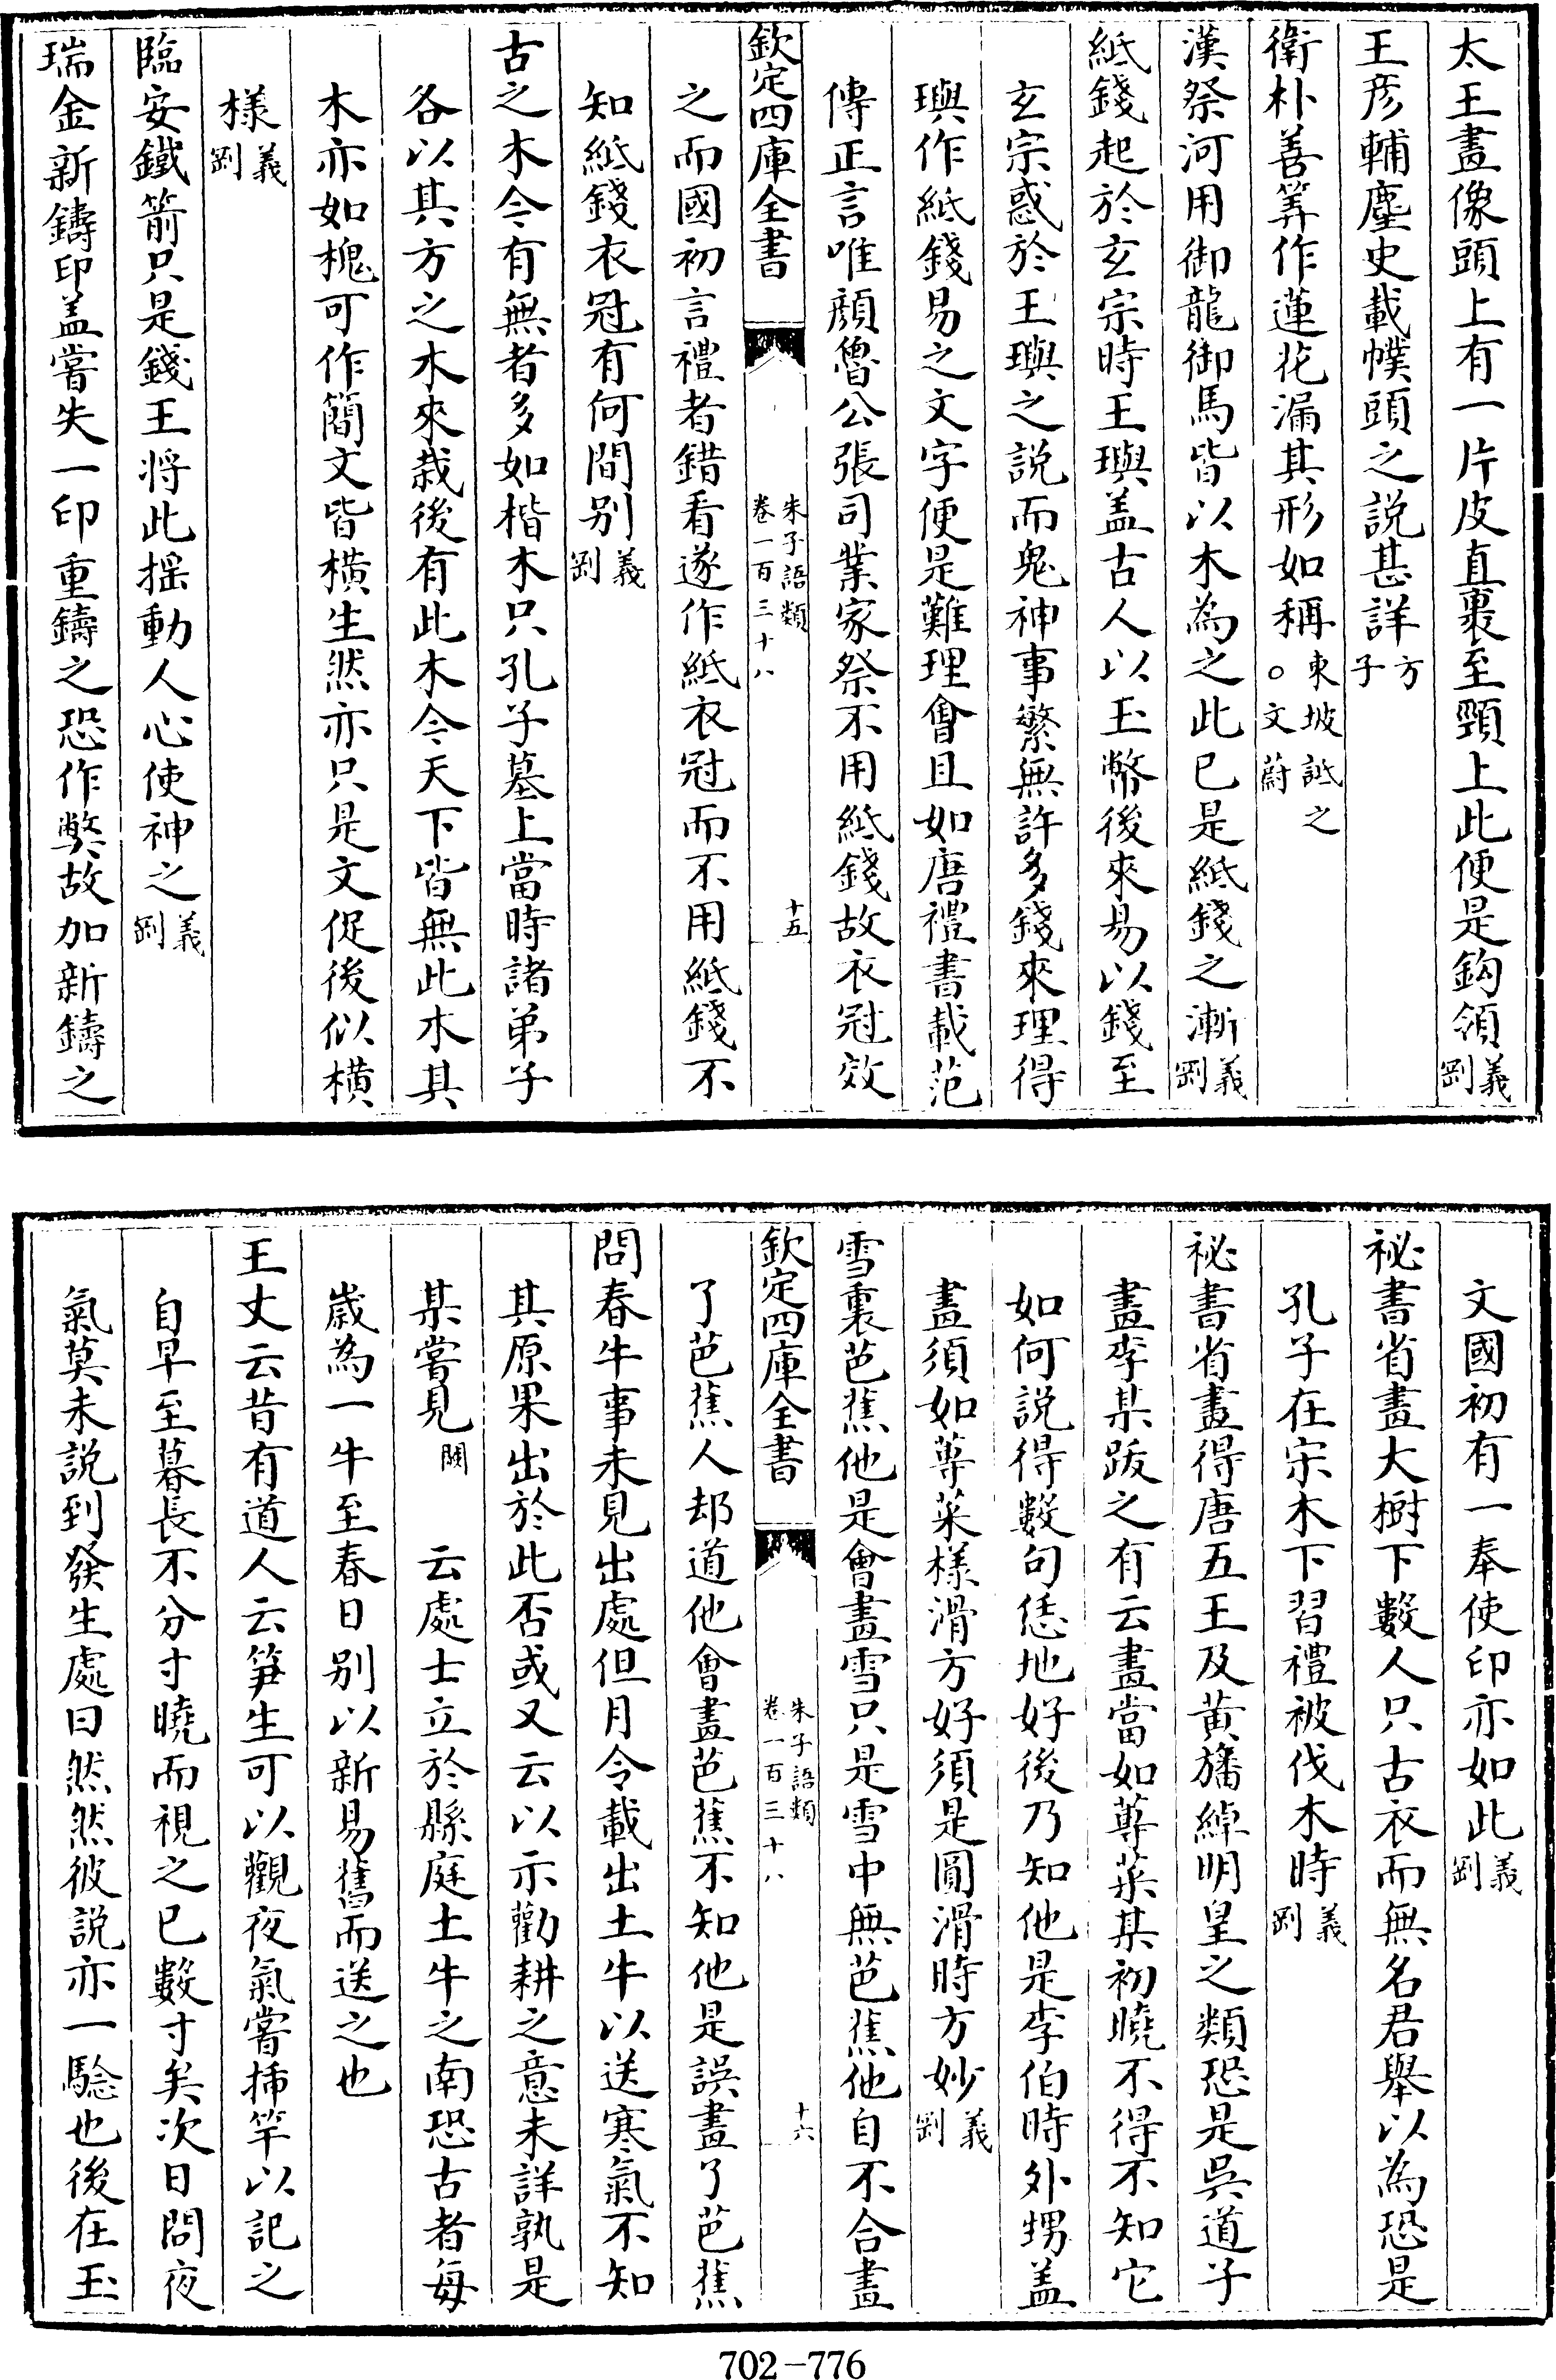 太王畫像頭上有一片皮直裹至頸上此便是鈎領義剛
王彦輔麈史載幞頭之説甚詳方子
衛朴善筭作蓮花漏其形如稱東坡詆之○文蔚
漢祭河用御龍御馬皆以木為之此已是紙錢之漸義剛
紙錢起於玄宗時王璵盖古人以玉幣後來易以錢至
玄宗惑於王璵之説而鬼神事繁無許多錢來理得
璵作紙錢易之文字便是難理會且如唐禮書載范
傳正言唯顔魯公張司業家祭不用紙錢故衣冠效
欽定四庫全書
朱子語類
卷一百三十八
十五
之而國初言禮者錯看遂作紙衣冠而不用紙錢不
知紙錢衣冠有何間别義剛
古之木今有無者多如楷木只孔子墓上當時諸弟子
各以其方之木來栽後有此木今天下皆無此木其
木亦如槐可作簡文皆橫生然亦只是文促後似横
様義剛
臨安鐵箭只是錢王将此揺動人心使神之義剛
瑞金新鑄印盖嘗失一印重鑄之恐作弊故加新鑄之
文國初有一奉使印亦如此義剛
祕書省畫大樹下數人只古衣而無名君舉以為恐是
孔子在宋木下習禮被伐木時義剛
祕書省畫得唐五王及黄旛綽明皇之類恐是吳道子
畫李某跋之有云畫當如蓴菜某初曉不得不知它
如何説得數句恁地好後乃知他是李伯時外甥盖
畫須如蓴菜様滑方好須是圓滑時方妙義剛
雪裏芭蕉他是會畫雪只是雪中無芭蕉他自不合畫
欽定四庫全書
朱子語類
卷一百三十八
十六
了芭蕉人却道他會畫芭蕉不知他是誤畫了芭蕉
問春牛事未見出處但月令載出土牛以送寒氣不知
其原果出於此否或又云以示勸耕之意未詳孰是
某嘗見闕云處士立於縣庭土牛之南恐古者每
歲為一牛至春日别以新易舊而送之也
王丈云昔有道人云笋生可以觀夜氣嘗挿竿以記之
自早至暮長不分寸曉而視之已數寸矣次日問夜
氣莫未説到發生處曰然然彼説亦一騐也後在玉
702-776